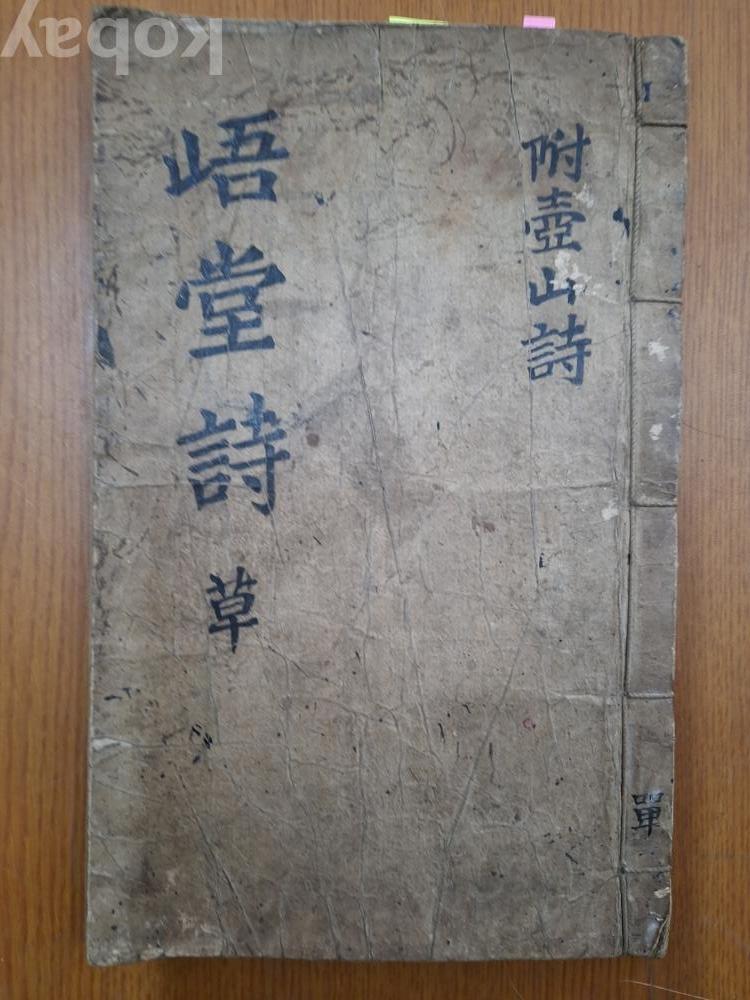 kobay
附壺山詩
峿堂詩草
單